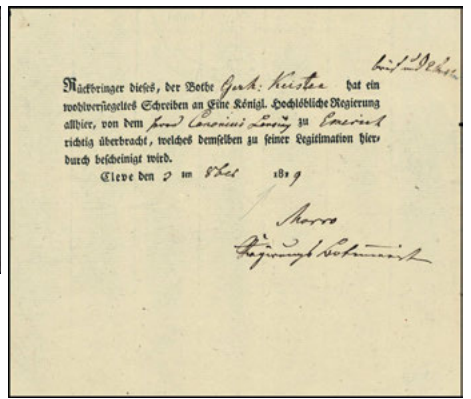 Rückbringer dieses, der Bothe Gerh: Kersten hat ein
wohlversiegeltes Schreiben an Eine Königl. Hochlöbliche Regierung
allhier, von dem Canonicus zu Emerich
richtig überbracht, welches demselben zu seiner Legitimation hier-
durch bescheinigt wird.
Cleve den 3 tm 8ber 1819
Morro
Regierungs Botenmeist